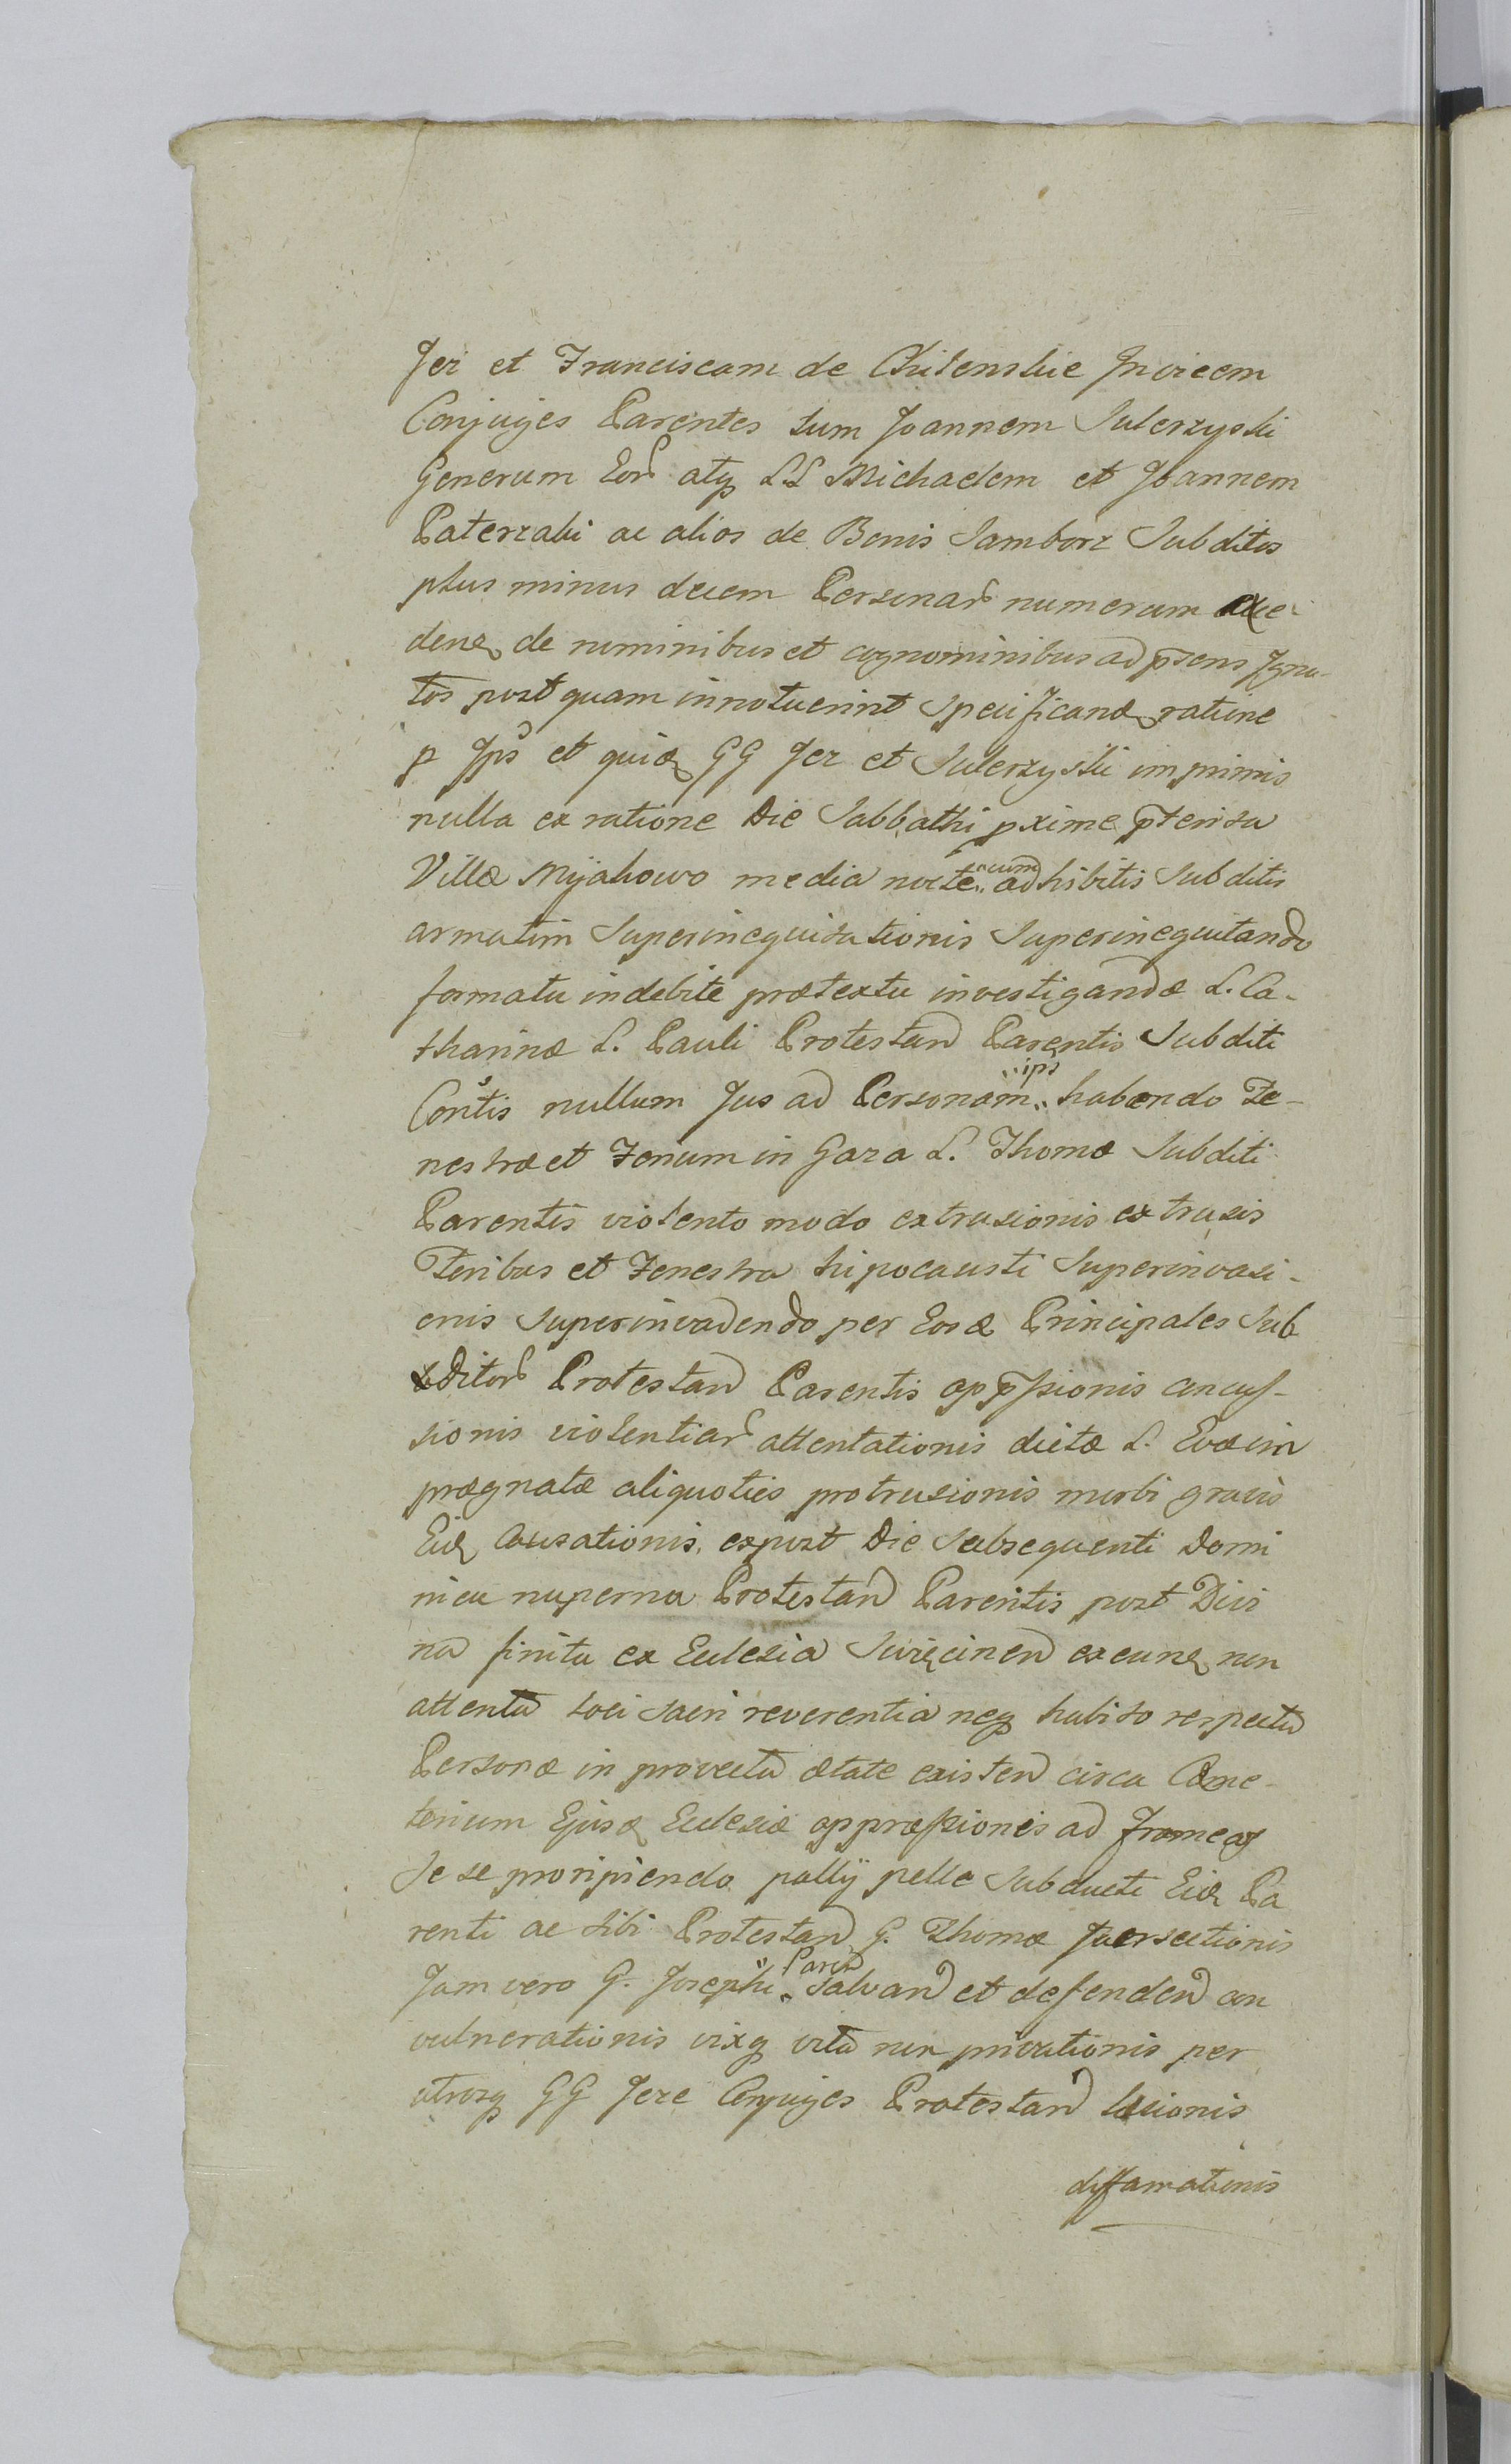 Jer et Franciscam de Chilenskie Invicem
Conjuges Parentes tum Joannem Sulerzyski
Generum Eor atq LL Michaelem et Joannem
Paterzaki ac alios de Bonis Samborz Subditos
plus minus decem Personar numerum exce-
den de nominibus et cognominibus ad pñsens Igno-
tos post quam innotuerint Specificand ratione
p Ips et quid GG Jer et Sulerzyski imprimis
nulla ex ratione Die Sabbathi pxime pterita
Villæ Myjakowo media nocte secum adhibitis Subditis
armatim Superinequitationis Superinequitando
formatu indebite prætextu investigandæ L. Ca-
tharinæ L. Pauli Protestan Parentis Subditi
Contis nullum Jus ad Personam ips habendo Fe-
nestræ et Forium in Gaza L. Thomæ Subditi
Parentis violento modo extrusionis extrusis
Foribus et Fenestra hipocausti Superinvasi-
onis Superinvadendo per Eosd Principales Sub
ditor Protestan Parentis oppssionis concus-
sionis violentiar attentationis dictæ L. Evæ im
prægnatæ aliquoties protrusionis morbi gravis
Eid Causationis, expost Die Subsequenti Domi
nica nuperna Protestan Parentis post Divi
na finita ex Ecclesia Swięcinen exeunt non
attenta loci Sacri reverentia neq habito respectu
Personæ in provecta ætate existen circa Cæme-
terium Ejusd Ecclesiæ oppræssionis ad frameas
Se se proripiendo pallij pelle Subducti Eid Pa
renti ac sibi Protestan G. Thomæ Jnersectionis
Jam vero G. Josephi Paren Salvan et defenden con
vulnerationis vixq vita non privationis per
utrosq GG Jere Conjuges Protestan læsionis
diffamationis